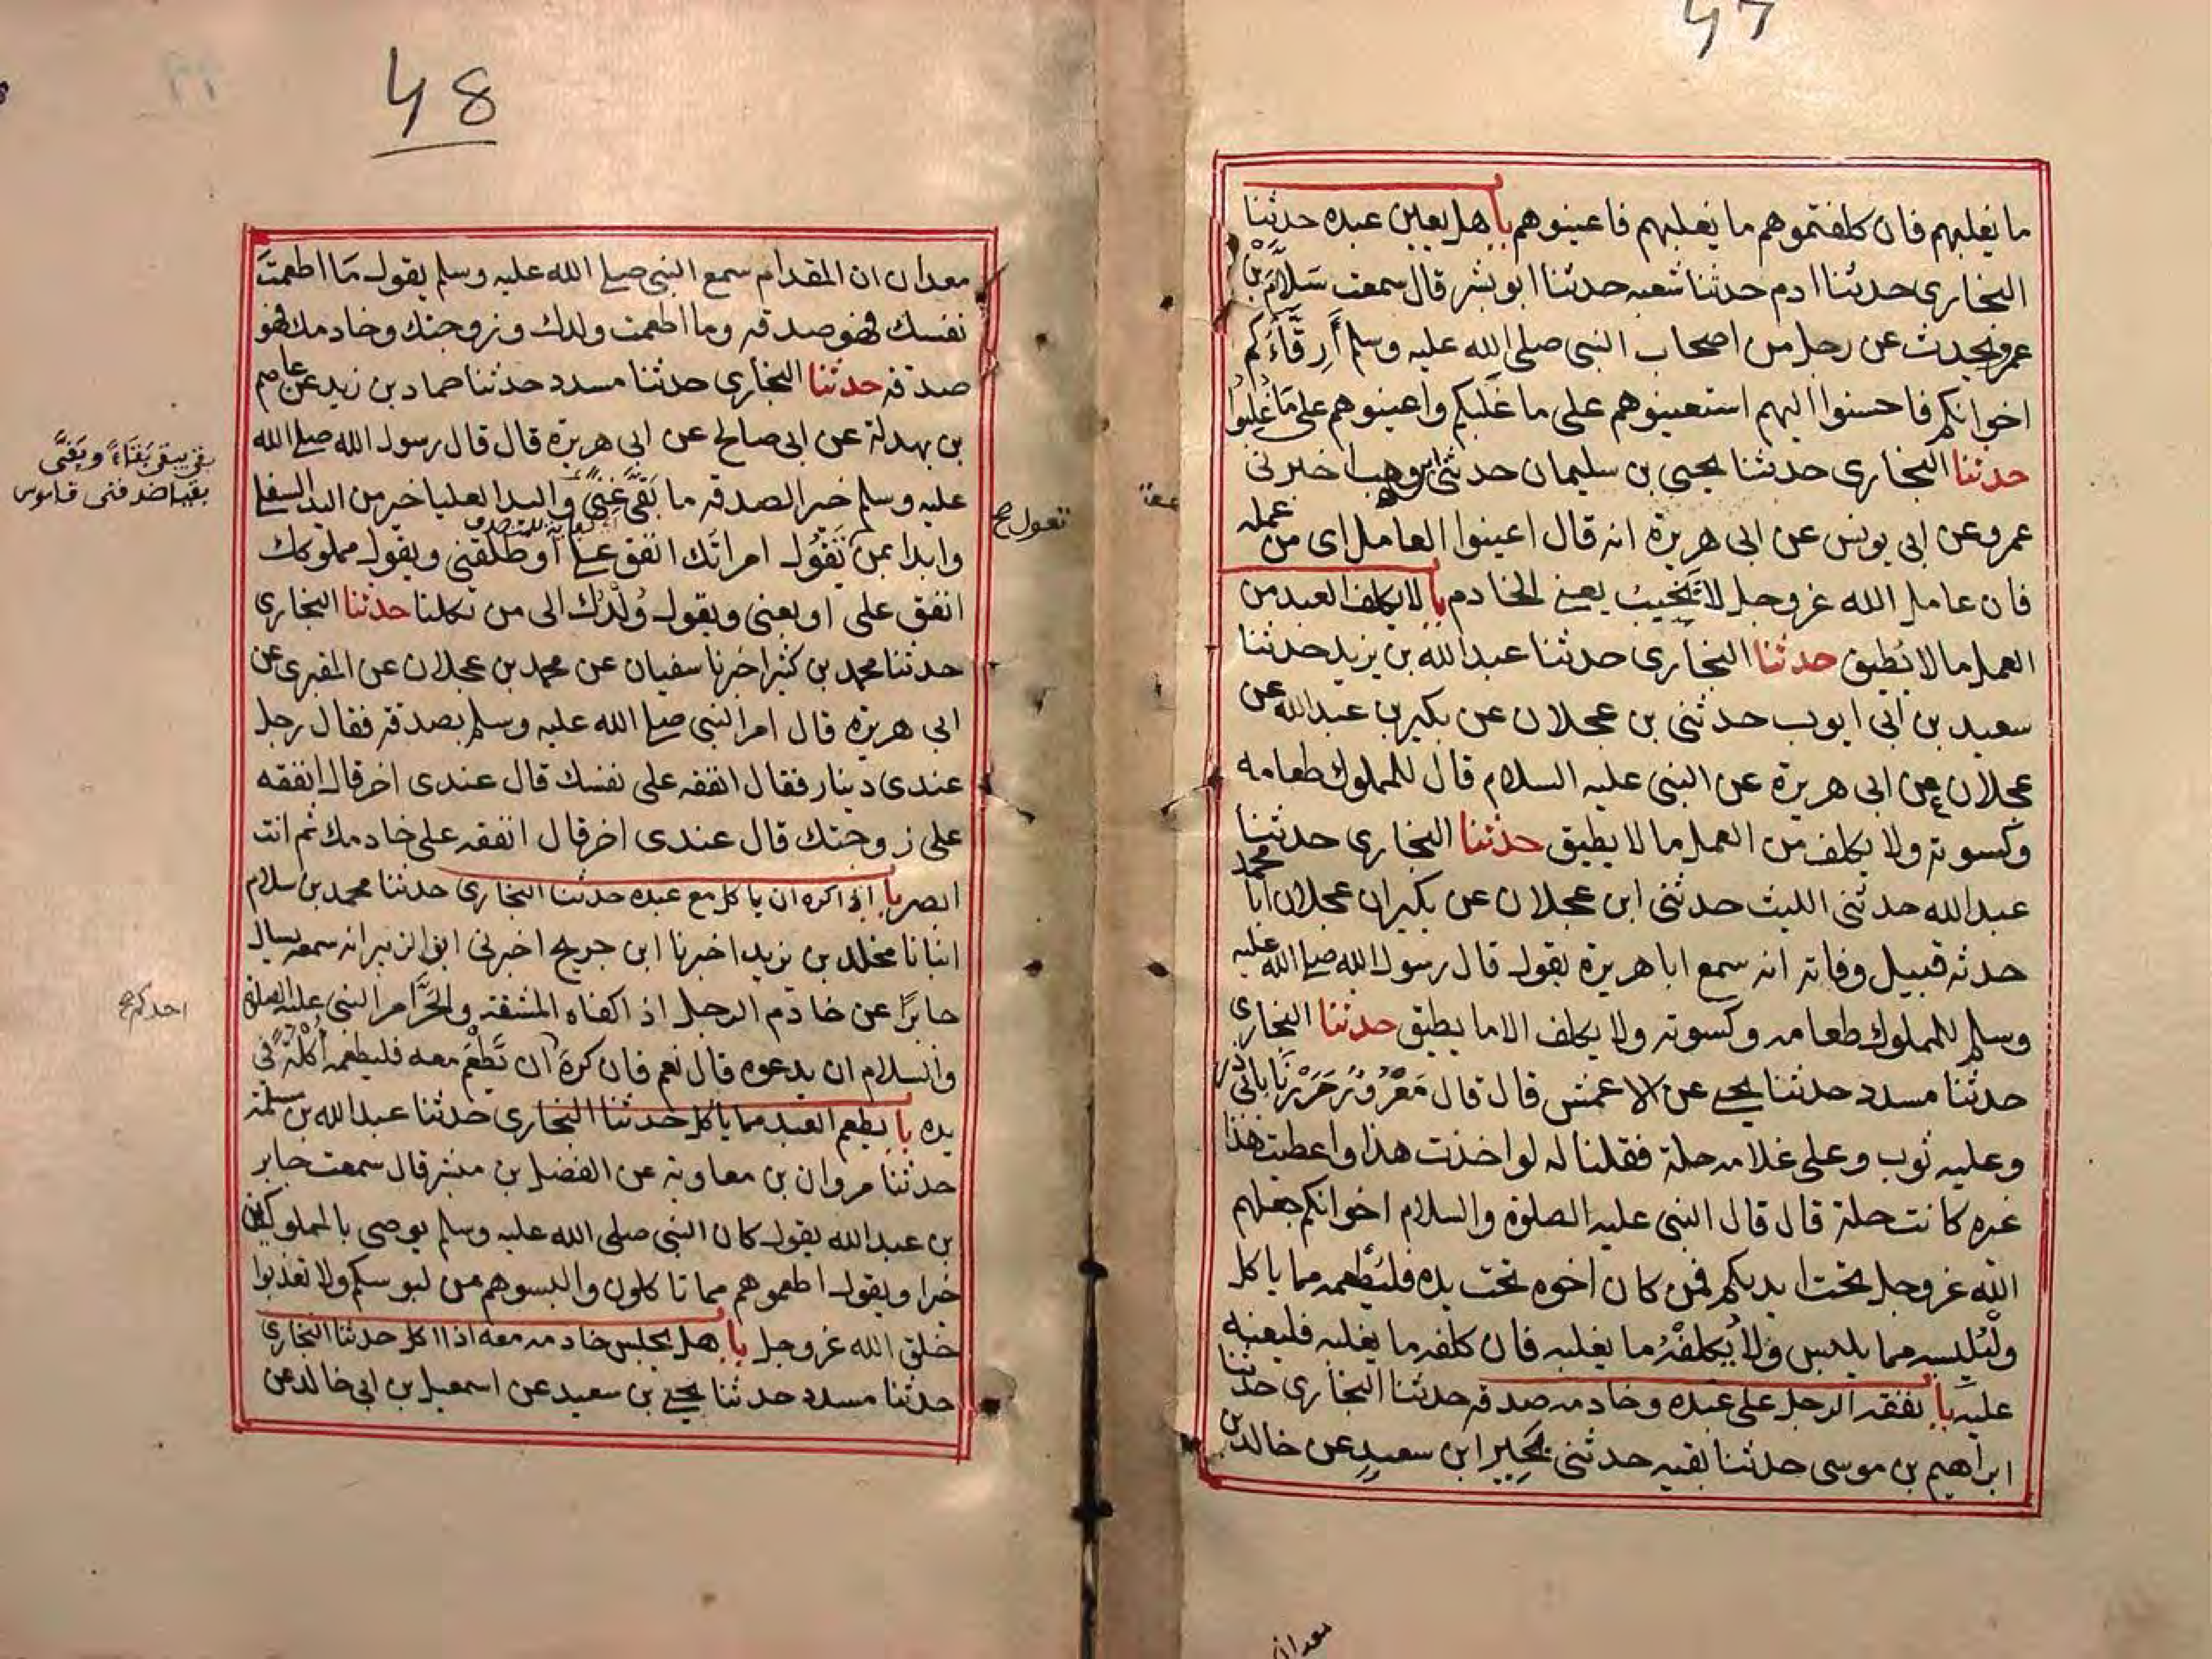 47
ما يغلبهم فان كلفتموهم ما يغلبهم فاعينوهم باب هل يعين عبده حدثنا
البخارى حدثنا ادم حدثنا شعبه حدثنا ابو بشر قال سمعت سَلاَّمَ بْنَ
عمرو يحدث عن رجل من اصحاب النبى صلى الله عليه وسلم أَرِقَّاءَكُم
اخوانكم فاحسنوا اليهم استعينوهم على ما غلبكم واعينوهم على مَا غُلِبُوا
حدثنا البخارى حدثنا يحيى بن سليمان حدثنى ابن وهب اخبرنى
عمرو عن ابى يونس عن ابى هريرة انه قال اعينوا العامل اى من عمله
فان عامل الله عزوجل لا يَخِيْبُ يعنى الخادم باب لا يكلف العبد من
العمل ما لا يُطيق حدثنا البخارى حدثنا عبد الله بن يزيد حدثنا
سعيد بن ابى ايوب حدثنى بن عجلان عن بكير بن عبد الله عن
عجلان عن ابى هريرة عن النبى عليه السلام قال للمملوك طعامه
وكسوته ولا يكلف من العمل ما لا يطيق حدثنا البخارى حدثنا
عبد الله حدثنى الليث حدثنى ابن عجلان عن بكير ان عجلان ابا محمد
حدثه قبيل وفاته انه سمع ابا هريرة يقول قال رسول الله صلى الله عليه
وسلم للمملوك طعامه وكسوته ولا يكلف الا ما يطيق حدثنا البخارى
حدثنا مسدد حدثنا يحيى عن الاعمش قال قال مَعْرُوْرٌ مَرَرْنَا بابى ذر
وعليه ثوب وعلى غلامه حلة فقلنا له لو اخذت هذا واعطيت هذا
غيره كانت حلة قال قال النبى عليه الصلوة والسلام اخوانكم جعلهم
الله عزوجل تحت ايديكم فمن كان اخوه تحت يده فليُطْعمه مما ياكل
ولْيُلْبسه مما يلبس ولا يُكلفْهُ ما يغلبه فان كلفه ما يغلبه فليعنه
عليه باب نفقه الرجل على عبده وخادمه صدقه حدثنا البخارى حدثنا
ابراهيم بن موسى حدثنا بقيه حدثنى بَحِير ابن سعيد عن خالد بن
معدان
48
معدان ان المقدام سمع النبى صلى الله عليه وسلم يقول مَا اطعمتَ
نفسك فهو صدقه وما اطعمت ولدك وزوجتك وخادمك فهو
صدقه حدثنا البخارى حدثنا مسدد حدثنا حماد بن زيد عن عاصم
بن بهدلة عن ابى صالح عن ابى هريرة قال قال رسول الله صلى الله
عليه وسلم خير الصدقه ما بَقَّى غِنىً واليد العليا خير من اليد السفلى
وابدا بمن تَقُوْلُ امراتك انفق علىَّ او طلقنى ويقول مملوكك
انفق على او بعنى ويقول وُلْدُك الى من تكلنا حدثنا البخارى
حدثنا محمد بن كثير اخبرنا سفيان عن محمد بن عجلان عن المقبرى عن
ابى هريرة قال امر النبى صلى الله عليه وسلم بصدقة فقال رجل
عندى دينار فقال انفقه على نفسك قال عندى اخر قال انفقه
على زوجتك قال عندى اخر قال انفقه على خادمك ثم انت
ابصر باب اذا كره ان ياكل مع عبده حدثنا البخارى حدثنا محمد بن سلام
انبانا مخلد بن يزيد اخبرنا ابن جريج اخبرنى ابو الزبير انه سمعه يسال
جابرًا عن خادم الرجل اذ اكفاه المشقه والحَرَّ امر النبى عليه الصلوة
والسلام ان يدعوه قال نعم فان كره ان تَطْعَمَ معه فليطعمه أُكْلَةً فى
يده باب يطعم العبد مما ياكل حدثنا البخارى حدثنا عبد الله بن مسلمة
حدثنا مروان بن معاوية عن الفضل بن مبشر قال سمعت جابر
بن عبد الله يقول كان النبى صلى الله عليه وسلم يوصى بالمملوكين
خيرا ويقول اطعموهم مما تاكلون والبسوهم من لبوسكم ولا تعذبوا
خلق الله عزوجل باب هل يجلس خادمه معه اذا اكل حدثنا البخارى
حدثنا مسدد حدثنا يحيى بن سعيد عن اسمعيل بن ابى خالد عن
تعول صح
بقى يبقى بَقَاءً وبَقىً
بقيا ضد فنى قاموس
احدكم صح